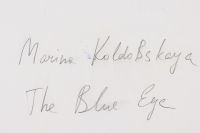 Marina Koldobskaya
The Blue Eye